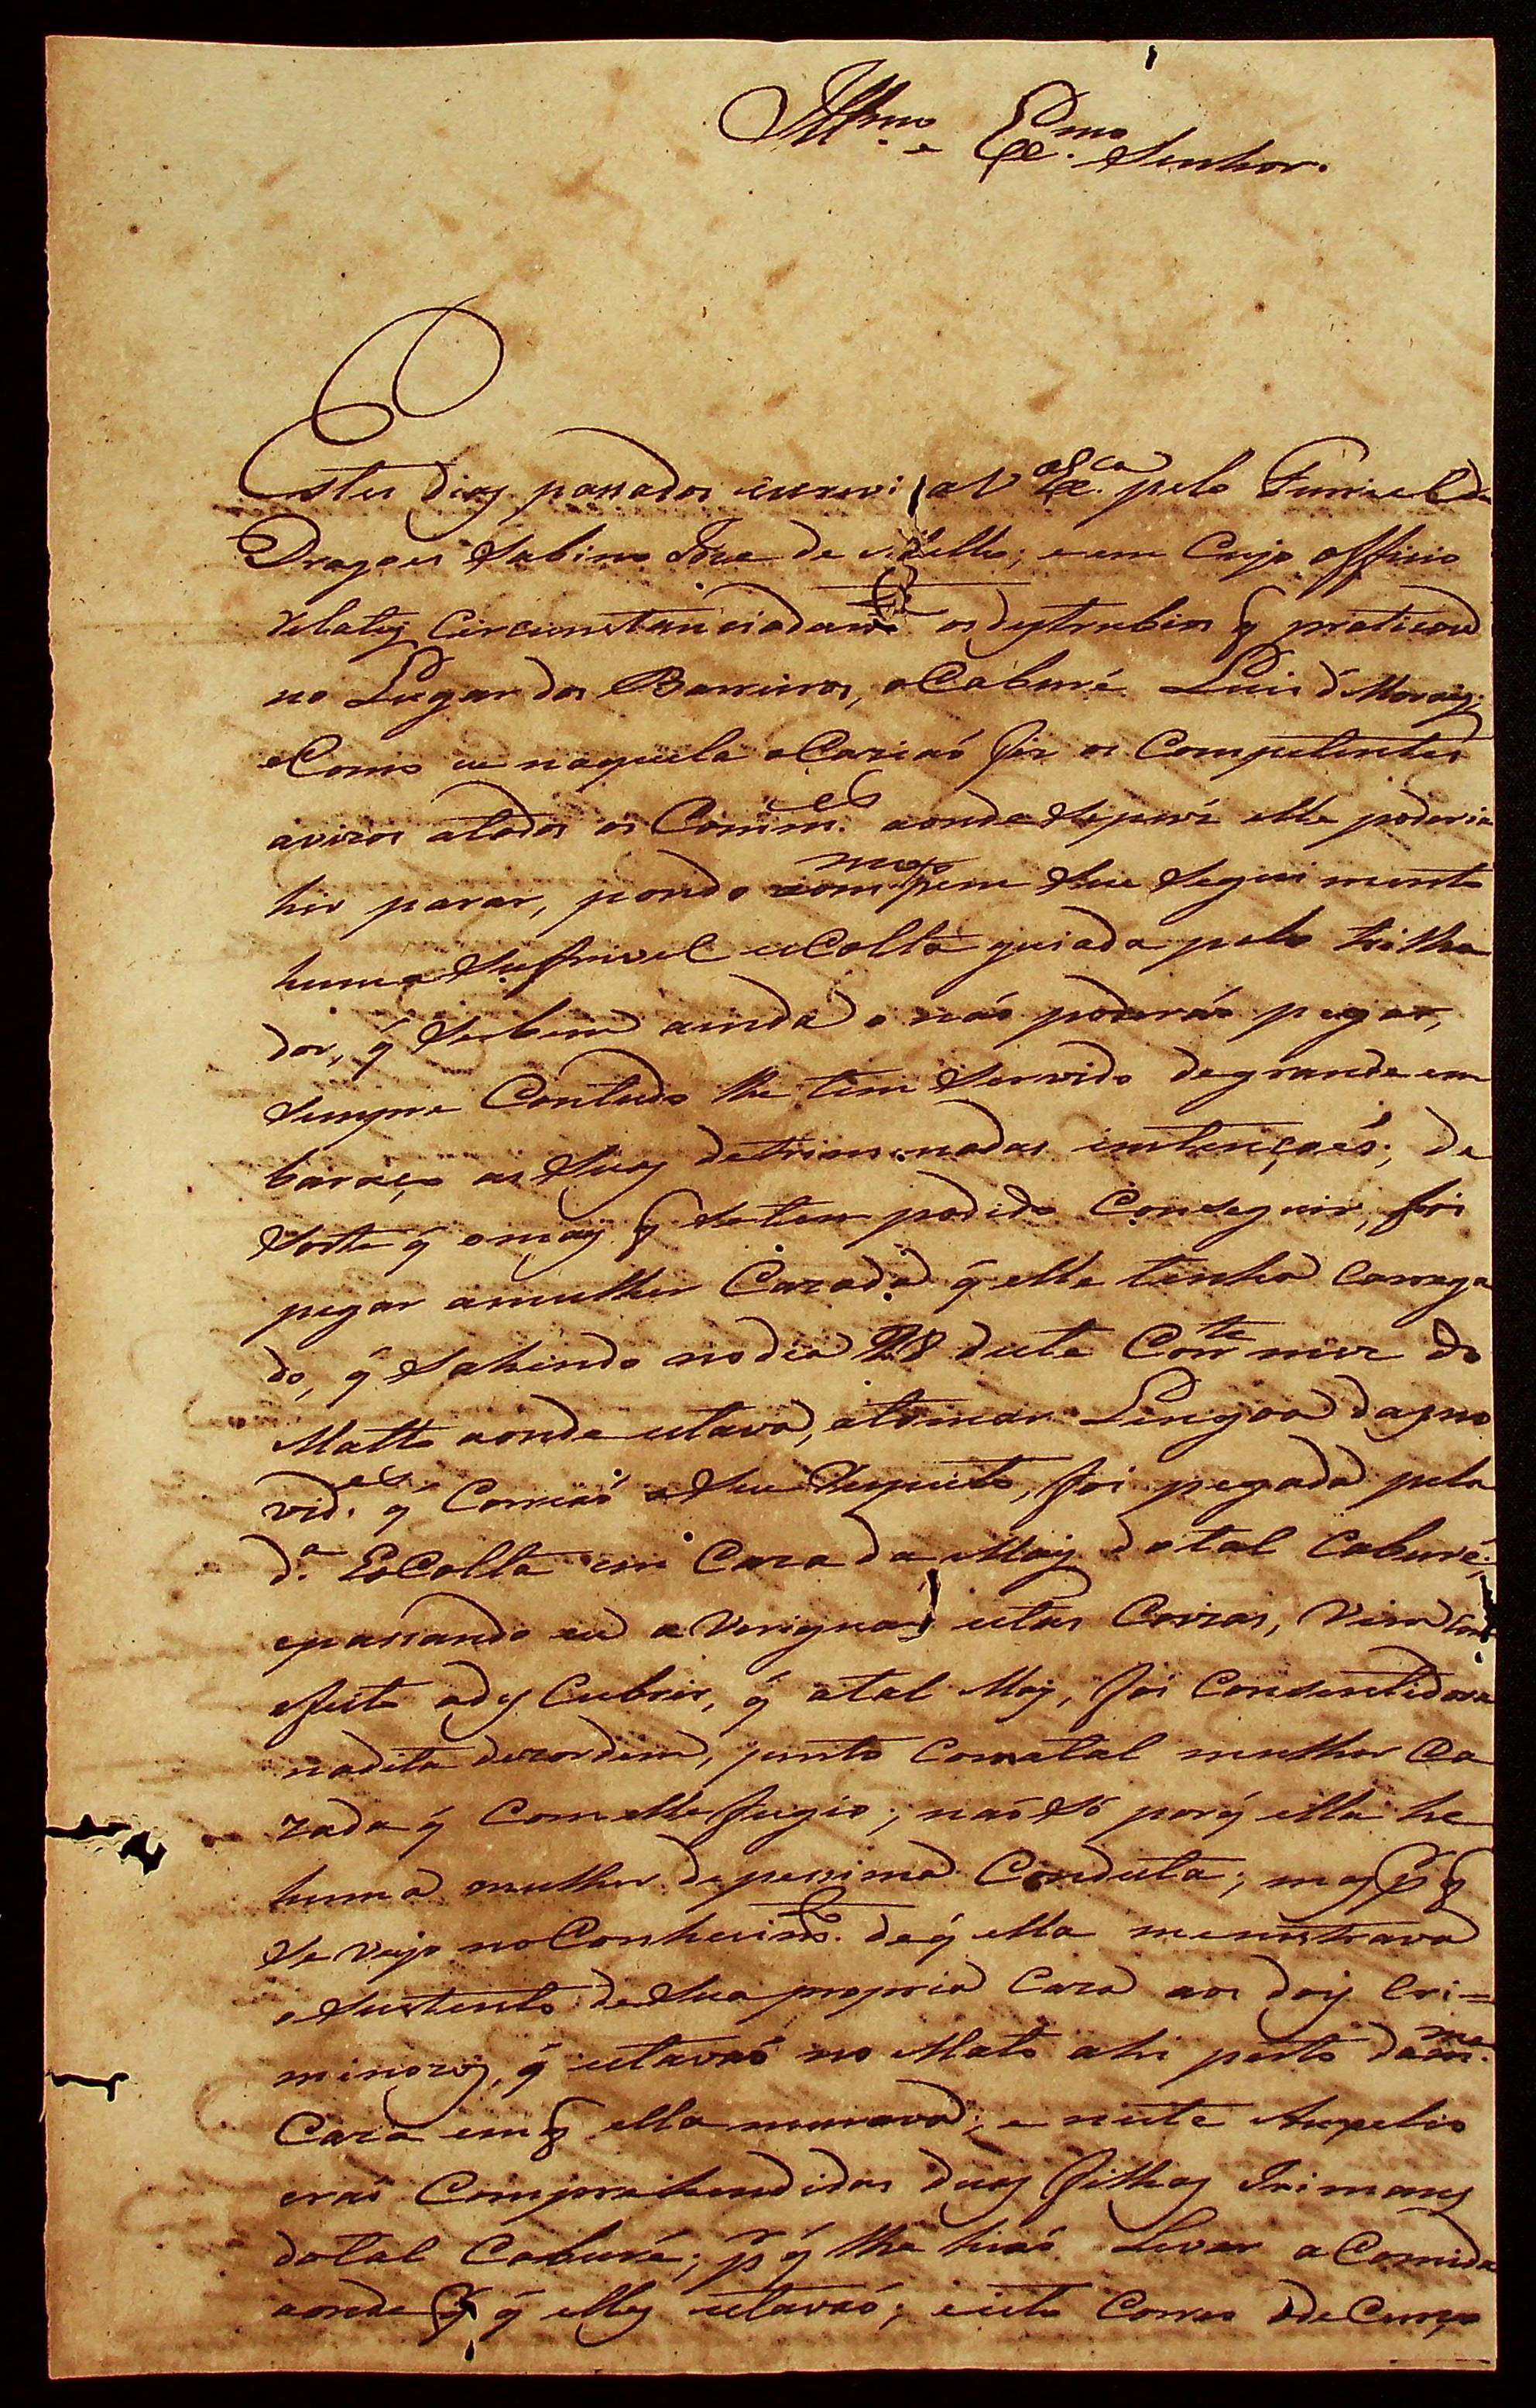 Illmo. e Exmo. Senhor.
Estes dias passados escrevi a V Exca. pelo Furriel de
Dragoes Sabino Joze de Mello; e em Cujo officio
relatey Circunstanciadamte os destrubios q praticou
no Lugar dos Barreiros, o Caburé Luis d' Moraes;
e Como eu naquela oCaziaõ fiz os Competentes
avizos atodos os Comm.es aonde Supuz elle poderia
hir parar, pondo mmo em Seu Seguimento
huma Sufrivel esColta guiada pelo trilha
dor, q̃ Sebem ainda o naõ poderaõ pegar,
Sempre Contudo lhe tem Servido degrande em
baraço as Suas detriminadas intençoés; de
Sorte q̃ omais q Setem podido Conseguir, foi
pegar amulher Cazada q̃ elle tinha Carrega
do, q̃ Sahindo nodia 28 deste Corrte mez do
Matto aonde estava, atomar Lingoa dasno
vid.es q̃ Corriaõ a Seu Respeito, foi pegada pela
d.a EsColta em Caza da May do tal Caburé;
epassando eu a Veriguar estas Couzas, Vim Com
efeito ades Cubrir, q̃ atal May, foi Consentidora
nadita dezordem, junto Comatal mulher Ca
zada q̃ Comelle fugio; naõ Só porq̃ ella he
huma mulher depessima Conduta; mas pr q
Se veyo no Conhecimto. deq̃ ella menistrava
o Sustento deSua propria Caza aos dois Cri=
minozos, q̃ estavaõ no Mato ahi perto dam.ma
Caza emq ella morava; e neste Aupelio
eraõ Comprehendidas duas filhas Irimans
dotal Caburé; pr q̃ lhe hiaõ Levar a Comida
aonde q̃ elles estavaõ; e isto Como deCurço